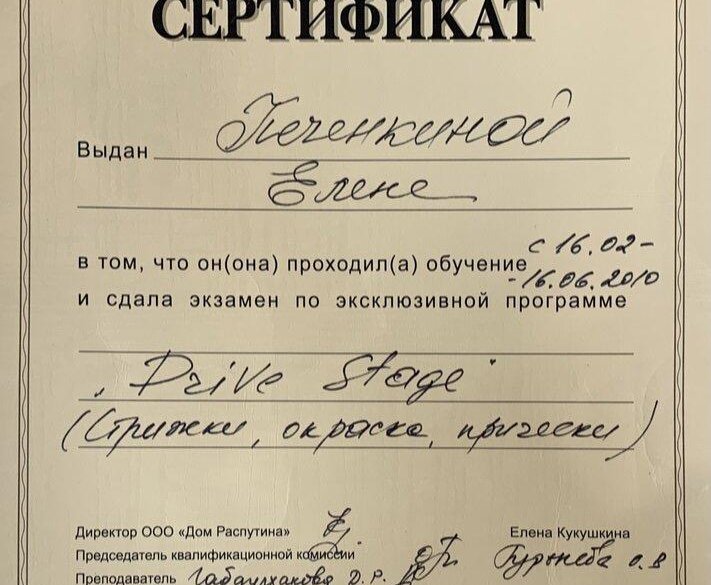 СЕРТИФИКАТ
Выдан Печенкиной
Елене
в том, что он(она) проходил(а) обучение с 16.02-
-16.06.2010
и сдала экзамен по эксклюзивной программе
„Drive Stage"
(Стрижки, окраска, прически)
Директор ООО «Дом Распутина» Елена Кукушкина
Председатель квалификационной комиссии О.В
Преподаватель Д.Р.